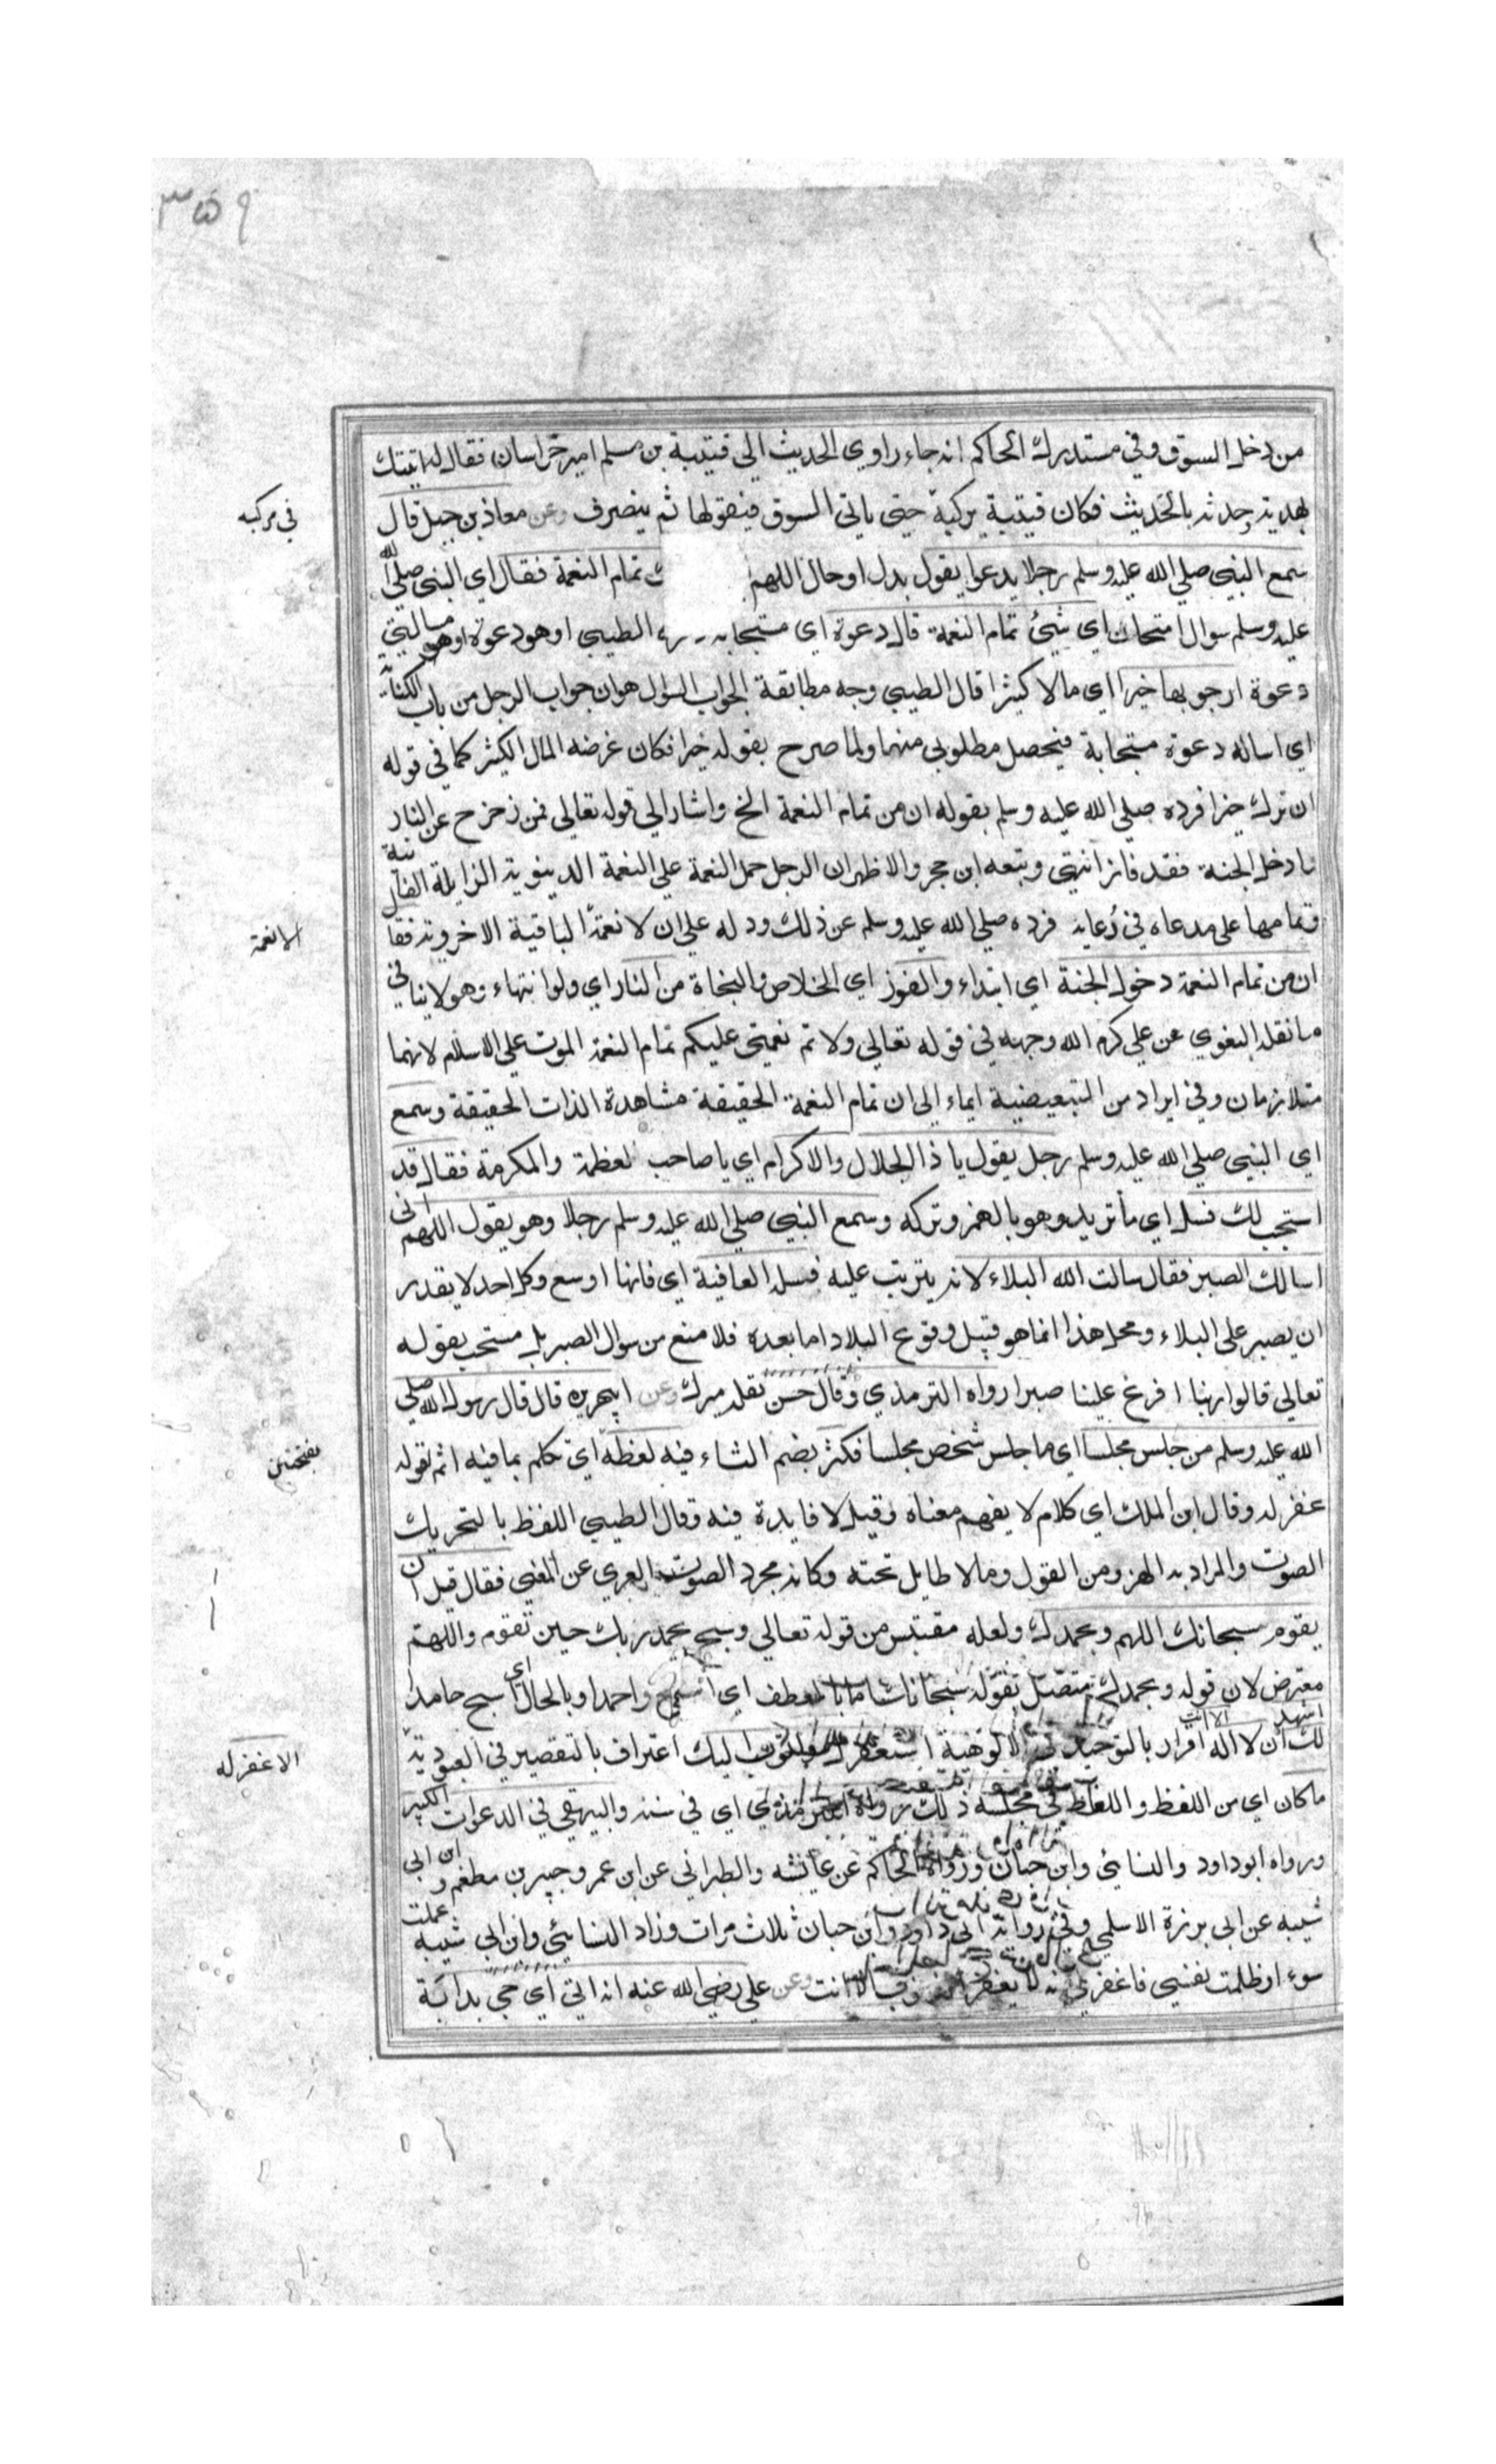 ٣٥٩
من دخل السوق وفي مستدرك الحاكم انه جاء راوي الحديث الى قتيبة بن مسلم امير خراسان فقال له اتيتك
بهدية وحدثه بالحديث فكان قتيبة يركب حتى ياتي السوق فيقولها ثم ينصرف وعن معاذ بن جبل قال
في مركبه
سمع النبي صلى الله عليه وسلم رجلا يدعوا يقول بدل او حال اللهم تمام النعمة فقال اي النبي صلى الله
عليه وسلم سوال امتحان اي شيئ تمام النعمة قال دعوة اي مستجابة الطيبي او هو دعوة او هو مسالتي
دعوة ارجو بها خيرا اي مالا كثيرا قال الطيبي وجه مطابقة الجواب السوال هو ان جواب الرجل من باب الكناية
اي اساله دعوة مستجابة فيحصل مطلوبي منها ولما صرح بقوله خيرا فكان غرضه المال الكثير كما في قوله
ان ترك خيرا فرده صلى الله عليه وسلم بقوله ان من تمام النعمة الخ واشار الى قوله تعالى فمن زحزح عن النار
وادخل الجنة فقد فاز انتهى وتبعه ابن حجر والاظهر ان الرجل حمل النعمة على النعمة الدينوية الزايلة الفانية
وتمامها على مدعاه في دعايه فرده صلى الله عليه وسلم عن ذلك ودله على ان لا نعمة الباقية الاخروية فقال
الا نعمة
ان من تمام النعمة دخول الجنة اي ابتداء والفوز اي الخلاص والنجاة من النار اي ولو انتهاء وهو لا ينافي
ما نقله البغوي عن علي كرم الله وجهه في قوله تعالى ولاتم نعمتي عليكم تمام النعمة الموت على الاسلام لانهما
متلازمان وفي ايراد من التبعيضية ايماء الى ان تمام النعمة الحقيقة مشاهدة الذات الحقيقة وسمع
اي النبي صلى الله عليه وسلم رجل يقول يا ذا الجلال والاكرام اي يا صاحب لعظمة والمكرمة فقال قد
استجب لك فسل اي ما تريد وهو بالهمز وتركه وسمع النبي صلى الله عليه وسلم رجلا وهو يقول اللهم اني
اسالك الصبر فقال سالت الله البلاء لانه يترتب عليه فسله العافية اي فانها اوسع وكل احد لا يقدر
ان يصبر على البلاء ومحل هذا انما هو قبل وقوع البلاد اما بعده فلا منع من سوال الصبر بل مستحب بقوله
تعالى قالوا ربنا افرغ علينا صبرا رواه الترمذي وقال حسن نقله ميرك وعن ابي هريرة قال قال رسول الله صلى
الله عليه وسلم من جلس مجلسا اي ما جلس شخص مجلسا فكثر بضم الثاء فيه لغطه اي تكلم بما فيه اثم لقوله
بفتحتين
غفر له وقال ابن الملك اي كلام لا يفهم معناه وقيل لا فايدة فيه وقال الطيبي اللغط بالتحريك
الصوت والمراد به الهزء من القول وما لا طايل تحته وكانه مجرد الصوت العري عن المعنى فقال قبل ان
يقوم سبحانك اللهم وبحمدك ولعله مقتبس من قوله تعالى وسبح بحمد ربك حين تقوم واللهم
معترض لان قوله وبحمدك متصل بقوله سبحانك اما بالعطف اي اسبح واحمد او بالحال اي اسبح حامدا
لك اشهد ان لا اله الا انت اقرار بالتوحيد في الالوهية استغفرك واتوب اليك اعتراف بالتقصير في العبودية
ما كان اي من اللفظ واللغط في مجلسه ذلك رواه الترمذي اي في سننه والبيهقي في الدعوات الكبير
الا غفر له
ورواه ابو داود والنسائي وابن حبان ورواه الحاكم عن عايشه والطبراني عن ابن عمر وجبير بن مطعم وابن ابي
شيبه عن ابي برزة الاسلمي وفي رواية ابي داود وابن حبان ثلاث مرات وزاد النسائي وابن ابي شيبه عملت
سوء او ظلمت نفسي فاغفر لي انه لا يغفر الذنوب الا انت وعن علي رضي الله عنه انه اتي اي جي بدابة